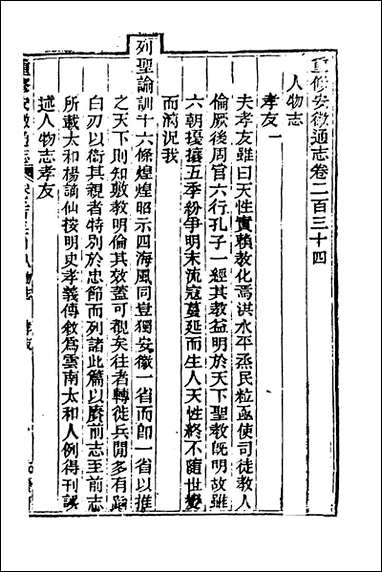 重修安徽通志卷二百三十四
人物志
孝友一
夫孝友雖曰天性實賴教化焉洪水平烝民粒亟使司徒教人
倫厥後周官六行孔子一經其教益明於天下聖教旣明故雖
六朝擾攘五季紛爭明末流寇蔓延而生人天性終不随世變
而漓況我
列聖諭訓十六條煌煌昭示四海風同豈獨安徽一省而卽一省以推
之天下則知敦教明倫其效蓋可觀矣往者轉徙兵閒多有蹈
白刃以衛其親者特別於忠節而列諸此篇以賡前志至前志
所載太和楊謫仙按明史孝義傳敘爲雲南太和人例得刊誤
述人物志孝友